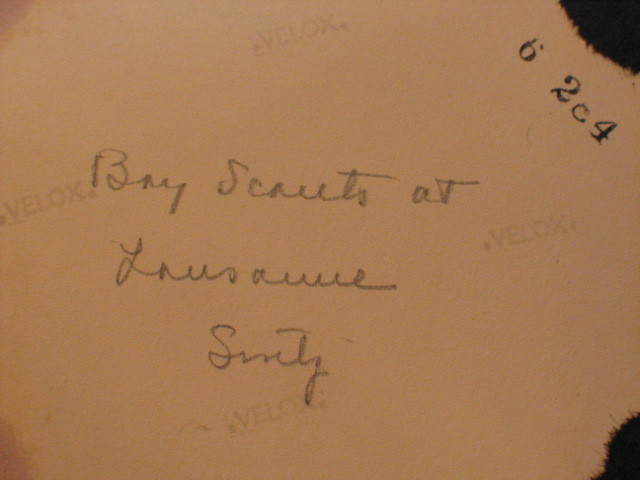 VELOX
6 2c4
Boy Scouts at
VELOX
VELOX
Lausanne
Switz
VELOX